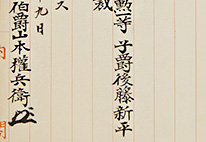 勲一等 子爵後藤新平
裁
ス
九日
伯爵山本權兵衛
内閣